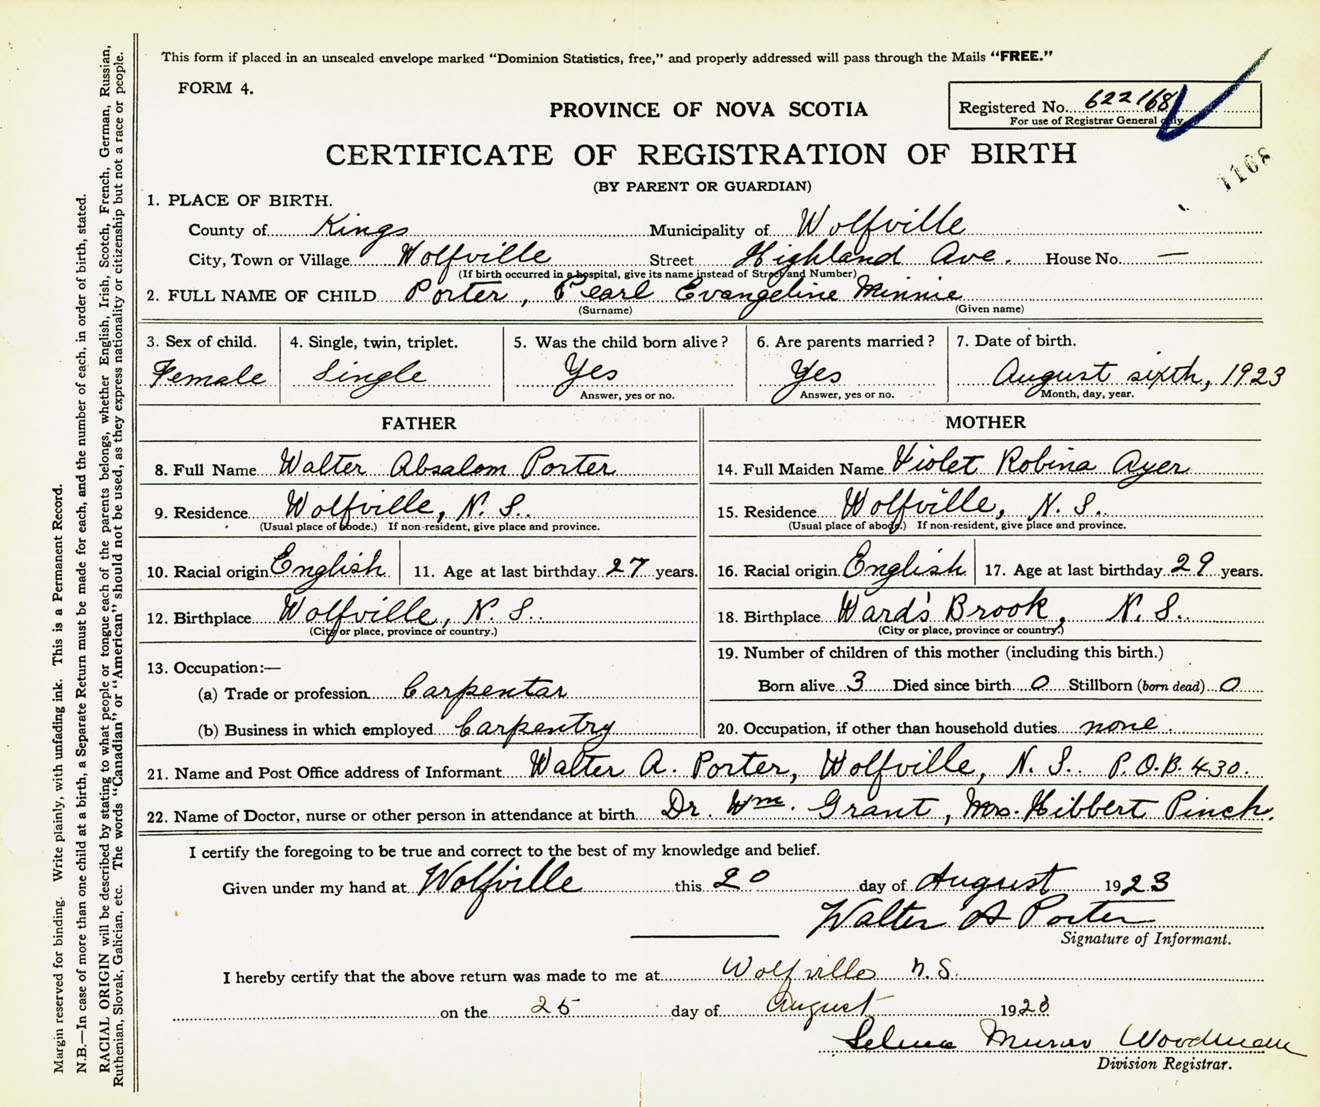 This form if placed in an unsealed envelope marked "Dominion Statistics, free," and properly addressed will pass through the Mails "FREE."
FORM 4.
Registered No. 622168
For use of Registrar General only.
PROVINCE OF NOVA SCOTIA
1168
CERTIFICATE OF REGISTRATION OF BIRTH
(BY PARENT OR GUARDIAN)
1. PLACE OF BIRTH.
County of Kings Municipality of Wolfville
City, Town or Village Wolfville Street Highland Ave. House No. —
(If birth occurred in a hospital, give its name instead of Street and Number)
2. FULL NAME OF CHILD Porter, Pearl Evangeline Minnie
(Surname) (Given name)
3. Sex of child. 4. Single, twin, triplet. 5. Was the child born alive? 6. Are parents married? 7. Date of birth.
Female Single Yes Yes August sixth, 1923
Answer, yes or no. Answer, yes or no. Month, day, year.
FATHER MOTHER
8. Full Name Walter Absalom Porter 14. Full Maiden Name Violet Robina Ayer
9. Residence Wolfville, N. S. 15. Residence Wolfville, N. S.
(Usual place of abode.) If non-resident, give place and province. (Usual place of abode.) If non-resident, give place and province.
10. Racial origin English 11. Age at last birthday 27 years. 16. Racial origin English 17. Age at last birthday 29 years.
12. Birthplace Wolfville, N. S. 18. Birthplace Ward's Brook, N. S.
(City or place, province or country.) (City or place, province or country.)
13. Occupation:— 19. Number of children of this mother (including this birth.)
(a) Trade or profession Carpentar Born alive 3 Died since birth 0 Stillborn (born dead) 0
(b) Business in which employed Carpentry 20. Occupation, if other than household duties none.
21. Name and Post Office address of Informant Walter A. Porter, Wolfville, N. S. P.O.B. 430.
22. Name of Doctor, nurse or other person in attendance at birth Dr. Wm. Grant, Mrs. Hibbert Pinch.
I certify the foregoing to be true and correct to the best of my knowledge and belief.
Given under my hand at Wolfville this 20 day of August 1923
Walter A Porter
Signature of Informant.
I hereby certify that the above return was made to me at Wolfville N.S.
on the 25 day of August 1923
Woodman
Division Registrar.
Margin reserved for binding. Write plainly, with unfading ink. This is a Permanent Record.
N.B.—In case of more than one child at a birth, a Separate Return must be made for each, and the number of each, in order of birth, stated.
RACIAL ORIGIN will be described by stating to what people or tongue each of the parents belongs, whether English, Irish, Scotch, French, German, Russian,
Ruthenian, Slovak, Galician, etc. The words "Canadian" or "American" should not be used, as they express nationality or citizenship but not a race or people.